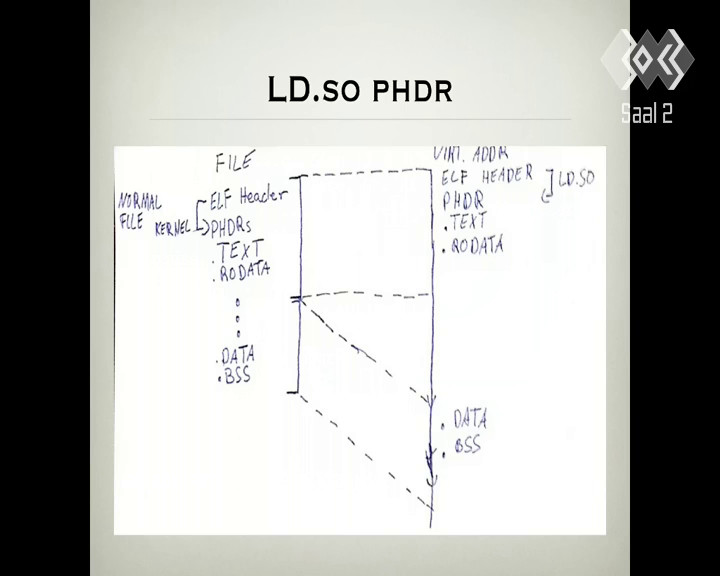 LD.SO PHDR
Saal 2
FILE
NORMAL
FILE
KERNEL
ELF Header
PHDRs
.TEXT
.RODATA
.DATA
.BSS
VIRT. ADDR
ELF HEADER
LD.SO
PHDR
.TEXT
.RODATA
.DATA
.BSS